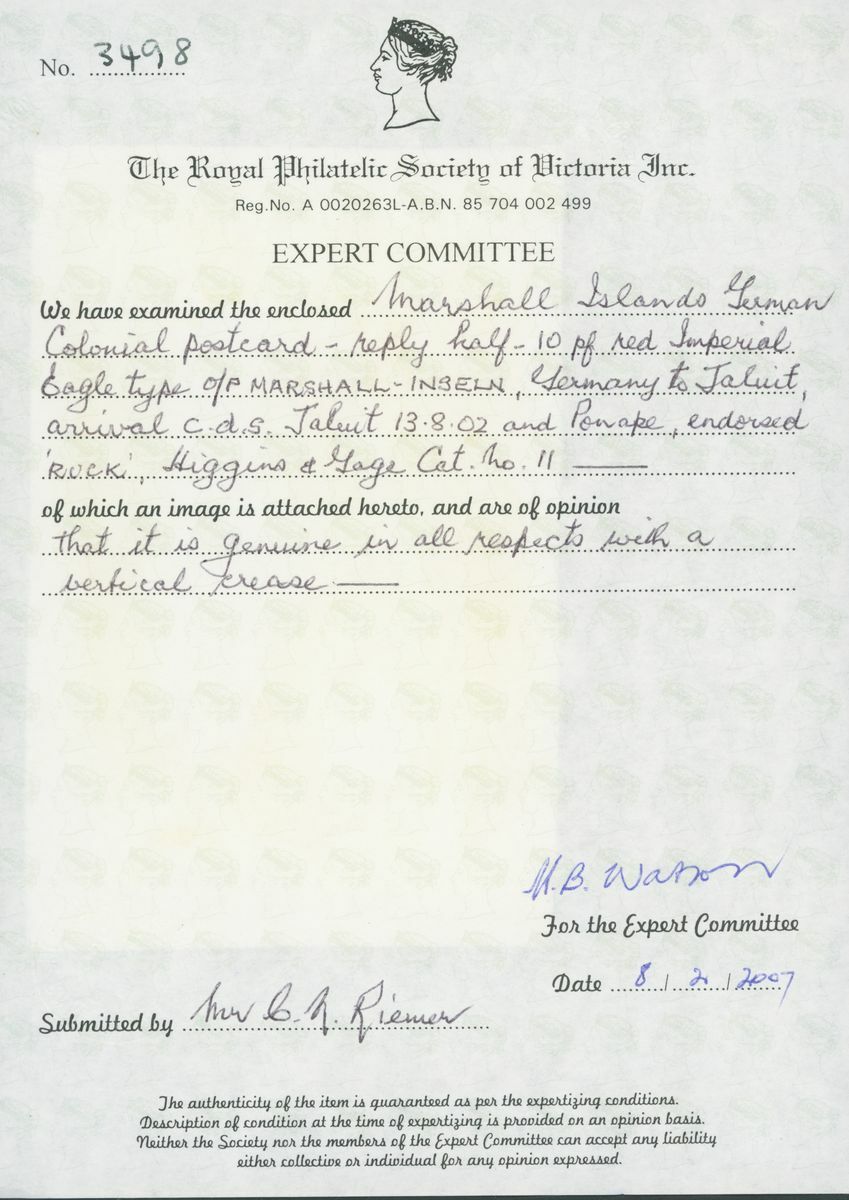 No. 3498
The Royal Philatelic Society of Victoria Inc.
Reg.No. A 0020263L-A.B.N. 85 704 002 499
EXPERT COMMITTEE
We have examined the enclosed Marshall Islands German
Colonial postcard - reply half - 10 pf red Imperial
Eagle type o/p MARSHALL-INSELN, Germany to Jaluit,
arrival c.d.s. Jaluit 13.8.02 and Ponape, endorsed
'RUCK', Higgins & Gage Cat. No. 11
of which an image is attached hereto, and are of opinion
that it is genuine in all respects with a
vertical crease
M.B. Watson
For the Expert Committee
Date 8 / 2 / 2007
Submitted by Mr C. N. Riemer
The authenticity of the item is guaranteed as per the expertizing conditions.
Description of condition at the time of expertizing is provided on an opinion basis.
Neither the Society nor the members of the Expert Committee can accept any liability
either collective or individual for any opinion expressed.